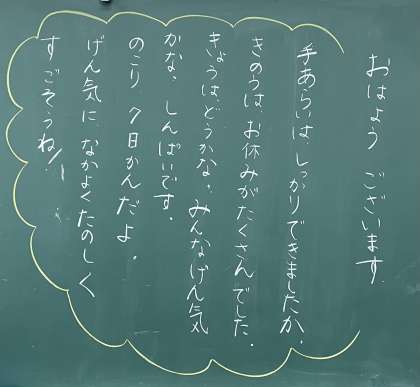 おはよう ございます
手あらいは しっかりできましたか。
きのうは、お休みがたくさんでした。
きょうは、どうかな。みんなげん気
かな。しんぱいです。
のこり 7日かんだよ。
げん気に なかよくたのしく
すごそうね!